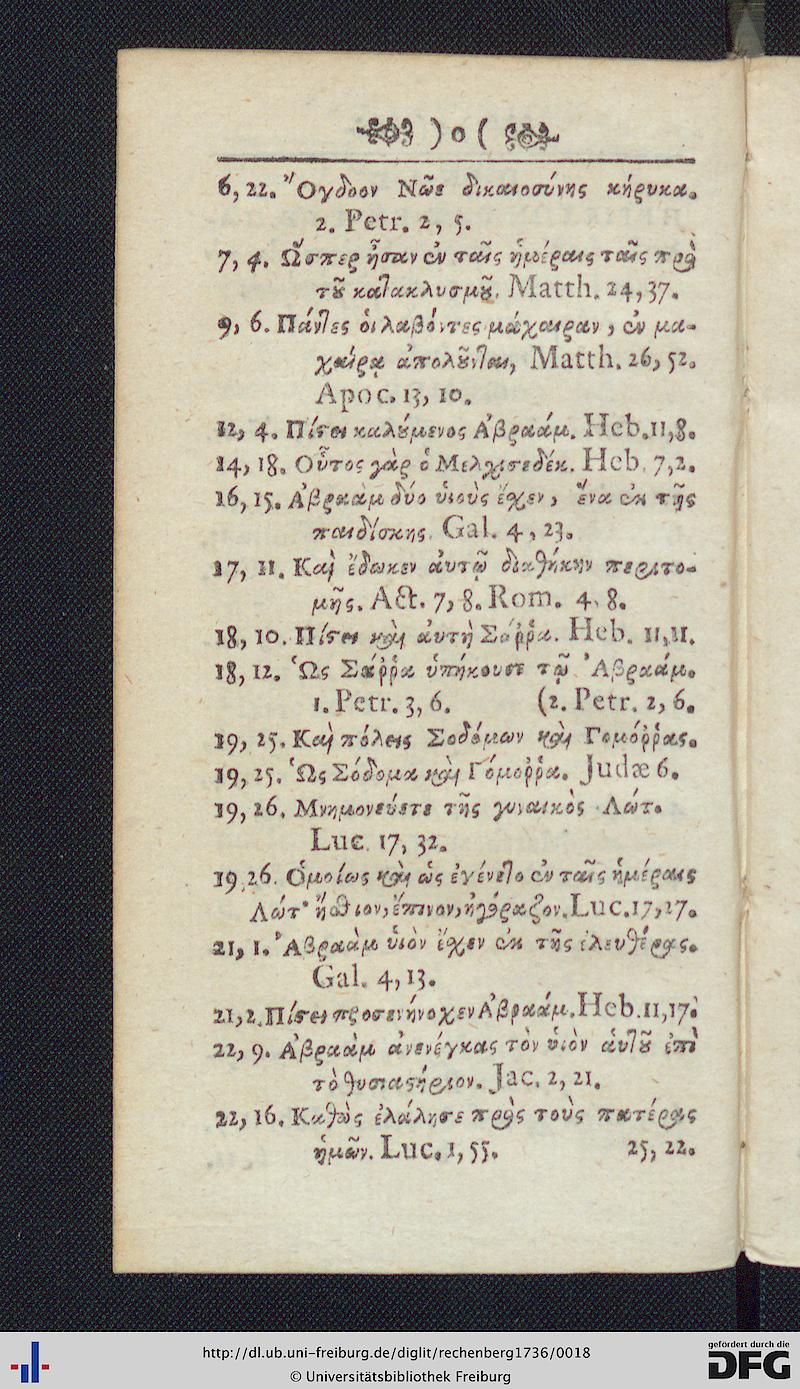 ) o (
6, 22. Ὄγδοον Νῶε δικαιοσύνης κήρυκα.
2. Petr. 2, 5.
7, 4. Ὥσπερ ἦσαν ἐν ταῖς ἡμέραις ταῖς πρὸ
τȣ͂ κατακλυσμȣ͂. Matth. 24, 37.
9, 6. Πάντες ὁι λαβόντες μάχαιραν, ἐν μα-
χαίρᾳ ἀπολȣ͂νται, Matth. 26, 52.
Apoc. 13, 10.
12, 4. Πίστει καλȣ́μενος Ἀβραάμ. Heb. 11, 8.
14, 18. Οὗτος γὰρ ὁ Μελχισεδέκ. Heb. 7, 2.
16, 15. Ἀβραὰμ δύο ὑιοὺς ἔχεν, ἕνα ἐκ τῆς
παιδίσκης. Gal. 4, 23.
17, 11. Καὶ ἔδωκεν ἀυτῷ διαθήκην περιτο-
μῆς. Act. 7, 8. Rom. 4, 8.
18, 10. Πίστει καὶ ἀυτὴ Σάῤῥα. Heb. 11, 11.
18, 12. Ὡς Σάῤῥα ὑπήκουσε τῷ Ἀβραάμ.
1. Petr. 3, 6. (2. Petr. 2, 6.
19, 25. Καὶ πόλεις Σοδόμων καὶ Γομόῤῥας.
19, 25. Ὡς Σόδομα καὶ Γόμοῤῥα. Judæ 6.
19, 26. Μνημονεύετε τῆς γυναικὸς Λώτ.
Luc. 17, 32.
19, 26. Ὁμοίως καὶ ὡς ἐγένετο ἐν ταῖς ἡμέραις
Λώτ· ἤσθιον, ἔπινον, ἠγόραζον. Luc. 17, 27.
21, 1. Ἀβραὰμ ὑιὸν ἔχεν ἐκ τῆς ἐλευθέρας.
Gal. 4, 13.
21, 2. Πίστει προσενήνοχεν Ἀβραάμ. Heb. 11, 17.
22, 9. Ἀβραὰμ ἀνενέγκας τὸν ὑιὸν ἁυτȣ͂ ἐπὶ
τὸ θυσιαστήριον. Jac. 2, 21.
22, 16. Καθὼς ἐλάλησε πρὸς τοὺς πατέρας
ἡμῶν. Luc. 1, 55. 25, 22.
http://dl.ub.uni-freiburg.de/diglit/rechenberg1736/0018
© Universitätsbibliothek Freiburg
gefördert durch die
DFG